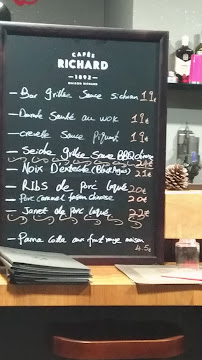 CAFÉS
RICHARD
1892
MAISON RICHARD
- Bar Grillée Sauce Sichuan 19€
- Daurade Sauté au wok 19€
- crevette Sauce Piquant 19€
- Seiche Grillée Sauce BBQ 21€
- Noix D'entrecôte 21€
- RIBS de Porc laqué 20€
- Porc caramel façon chinoise 20€
- Jarret de Porc laqué 22€
- Panna Cotta aux fruit rouge maison
4.5€